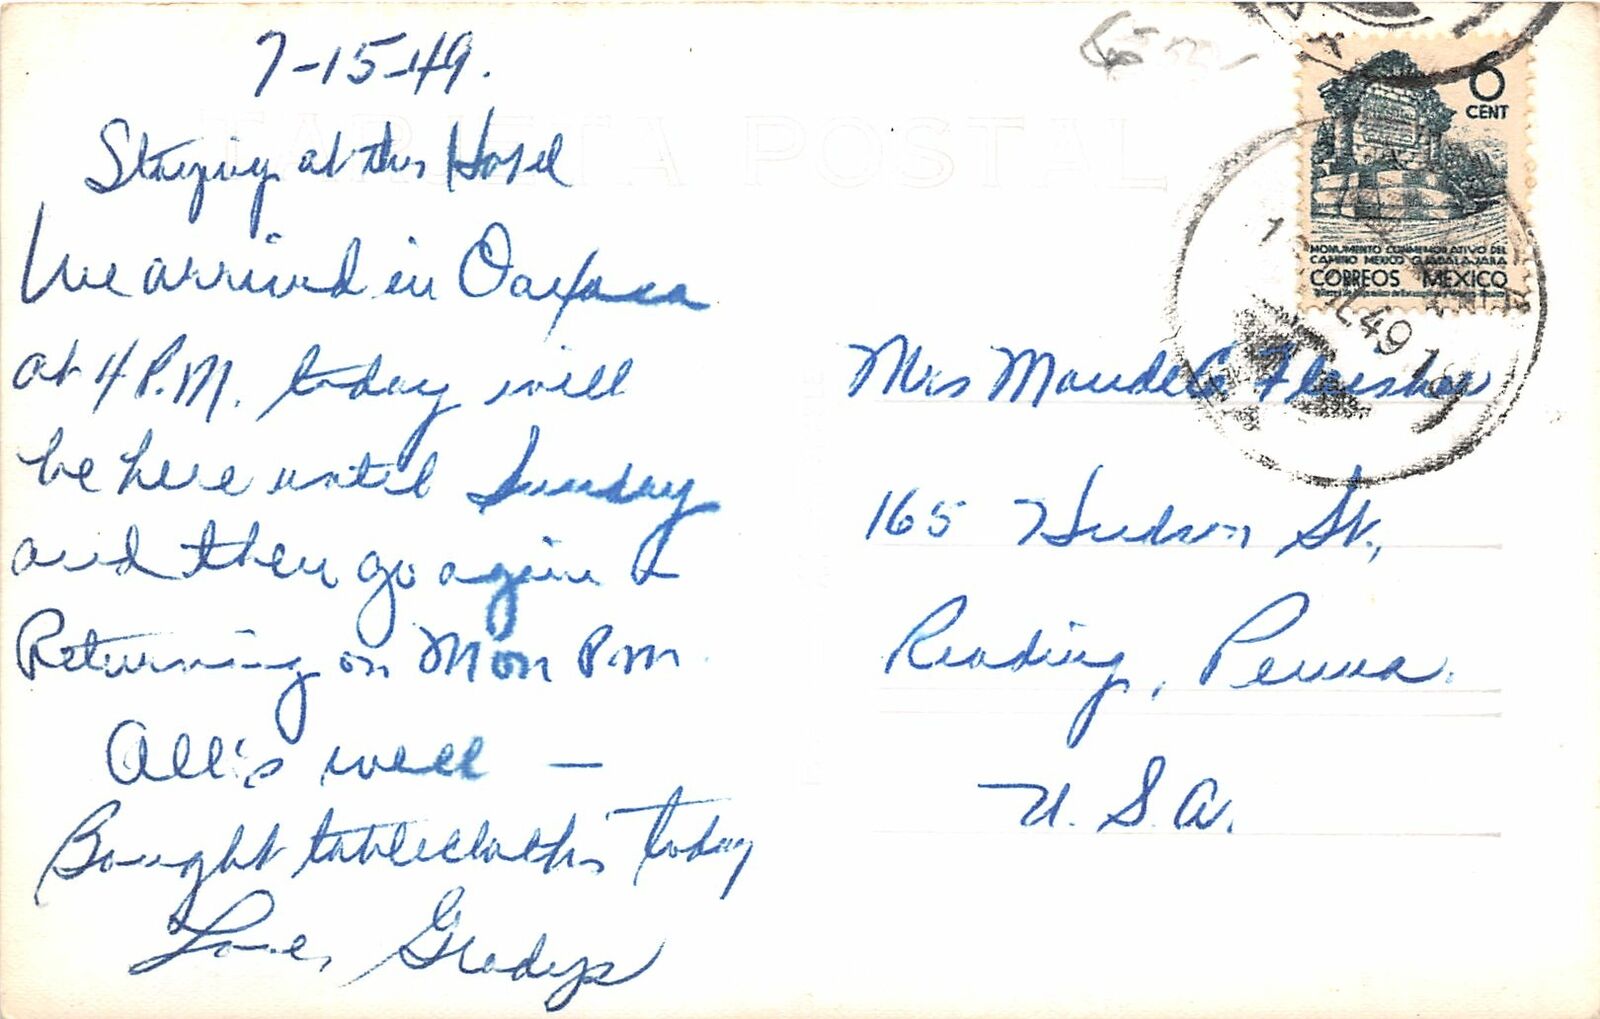 7-15-49.
Staying at this Hotel
We arrived in Oaxaca
at 4 P.M. today will
be here until Sunday
and then go again &
Returning on Mon P.m.
All's well —
Bought tablecloths today
Love, Gladys
TARJETA POSTAL
6
CENT
MONUMENTO CONMEMORATIVO DEL
CAMINO MEXICO GUADALAJARA
CORREOS MEXICO
49
Mrs Maude C Fleisher
165 Hudson St.,
Reading, Penna.
U.S.A.